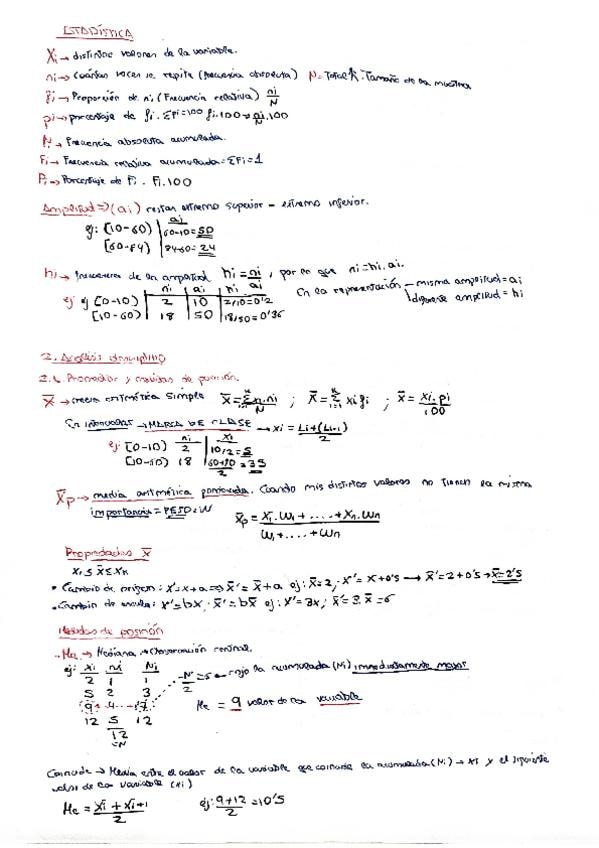 ESTADÍSTICA
Xi → distintos valores de la variable.
ni → Cuántas veces se repite (frecuencia absoluta) N = Total h: Tamaño de la muestra
fi → Proporción de ni (Frecuencia relativa) ni/N
pi → porcentaje de fi. ΣFi=100 fi.100 → ni/N.100
Ni → Frecuencia absoluta acumulada.
Fi → Frecuencia relativa acumulada = ΣFi = 1
Pi → Porcentaje de Fi. Fi.100
Amplitud ⇒ (ai) restar extremo superior - extremo inferior.
ai
ej: [10-60) 60-10=50
[60-84) 84-60=24
hi → frecuencia de la amplitud hi = ni/ai, por lo que ni=hi.ai.
En la representación misma amplitud = ai
diferente amplitud = hi
ni ai hi
ej [0-10) 2 10 2/10=0'2
[10-60) 18 50 18/50=0'36
2. Análisis descriptivo
2.1. Promedios y medidas de posición.
X̄ → media aritmética simple X̄ = Σxi.ni/N ; X̄ = Σ xi fi ; x̄ = xi.pi/100
En intervalos → MARCA DE CLASE → xi = Li+(Li-1)/2
ni xi
ej: [0-10) 2 10/2=5
[10-60) 18 60+10/2=35
X̄p → media aritmética ponderada. Cuando mis distintos valores no tienen la misma
importancia = PESO = W
X̄p = X1.W1+....+Xn.Wn/W1+....+Wn
Propiedades X̄
X1 ≤ X̄ ≤ Xk
• Cambio de origen: X'=x+a ⇒ X̄' = X̄+a ej: X̄=2, X'=X+0'5 → X̄'=2+0'5 → X̄=2'5
• Cambio de escala: X'=bX; X̄'=bX̄ ej: X'=3x; X̄'=3.X̄=6
Medidas de posición
. Me → Mediana → Observación central.
ej: xi ni Ni
2 1 1
5 2 3
9 4 7
12 5 12
12
=N
N/2 = 6 ← cojo la acumulada (Ni) inmediatamente mayor
Me = 9 valor de la variable
Coincide → Media entre el valor de la variable que coincide la acumulada (Ni) → xi y el siguiente
valor de la variable (xi)
Me = Xi + Xi+1/2 ej: 9+12/2 = 10'5